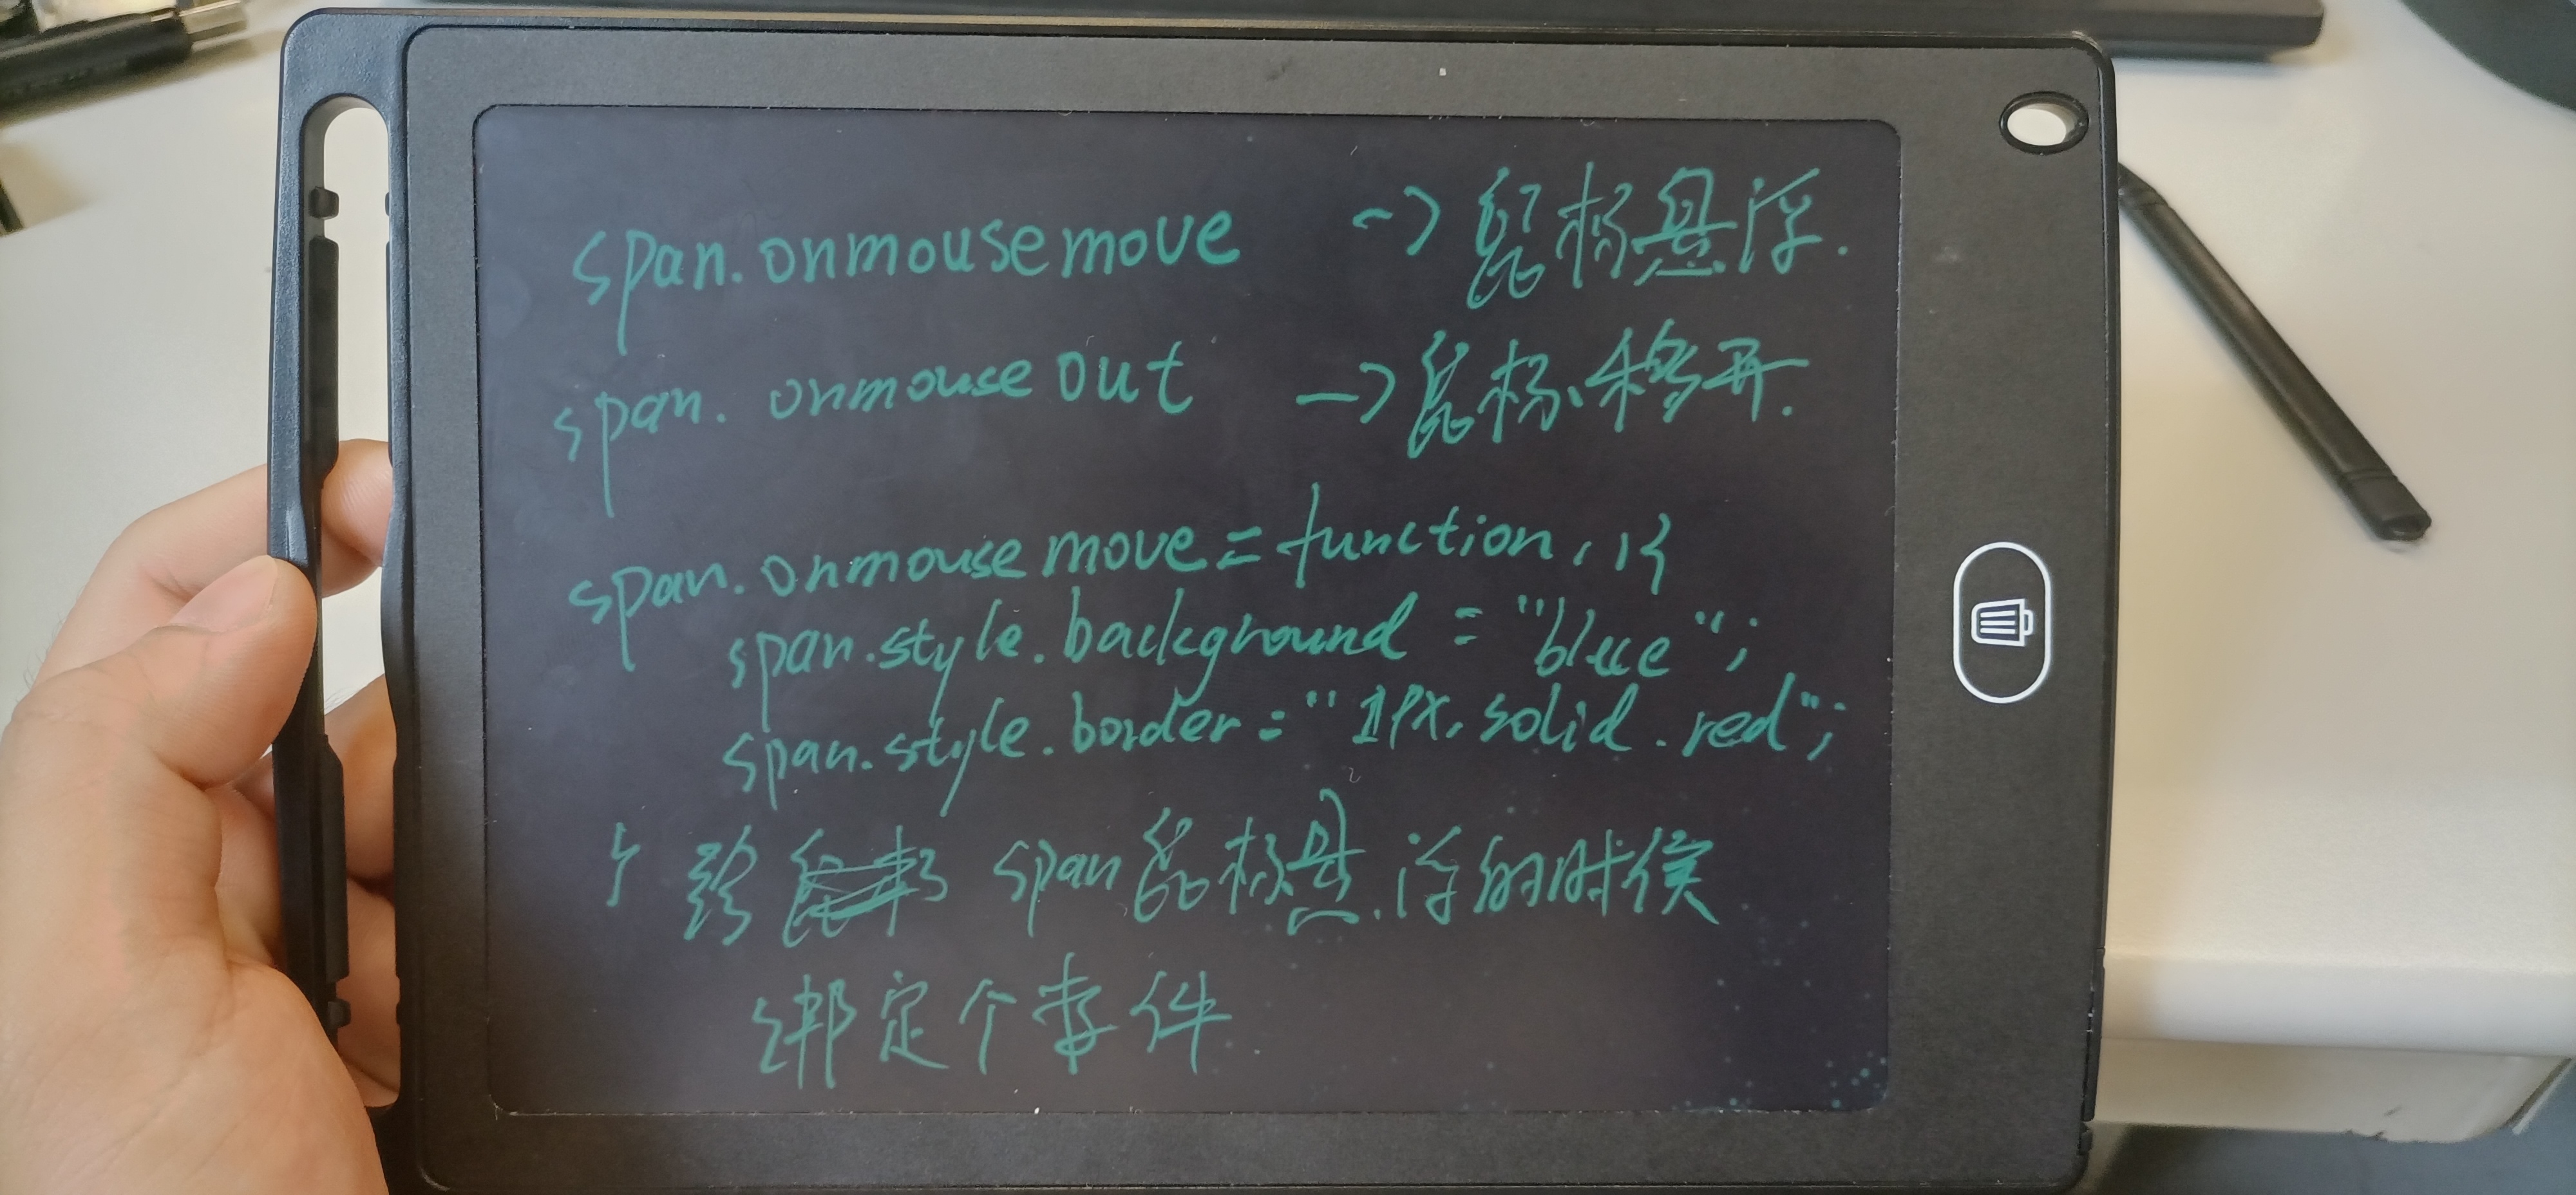 span.onmousemove -> 鼠标悬浮.
span. onmouseout -> 鼠标移开.
span.onmousemove = function(){
span.style.background = "blue";
span.style.border = "1px solid red";
} 给 span鼠标悬浮的时候
绑定个事件